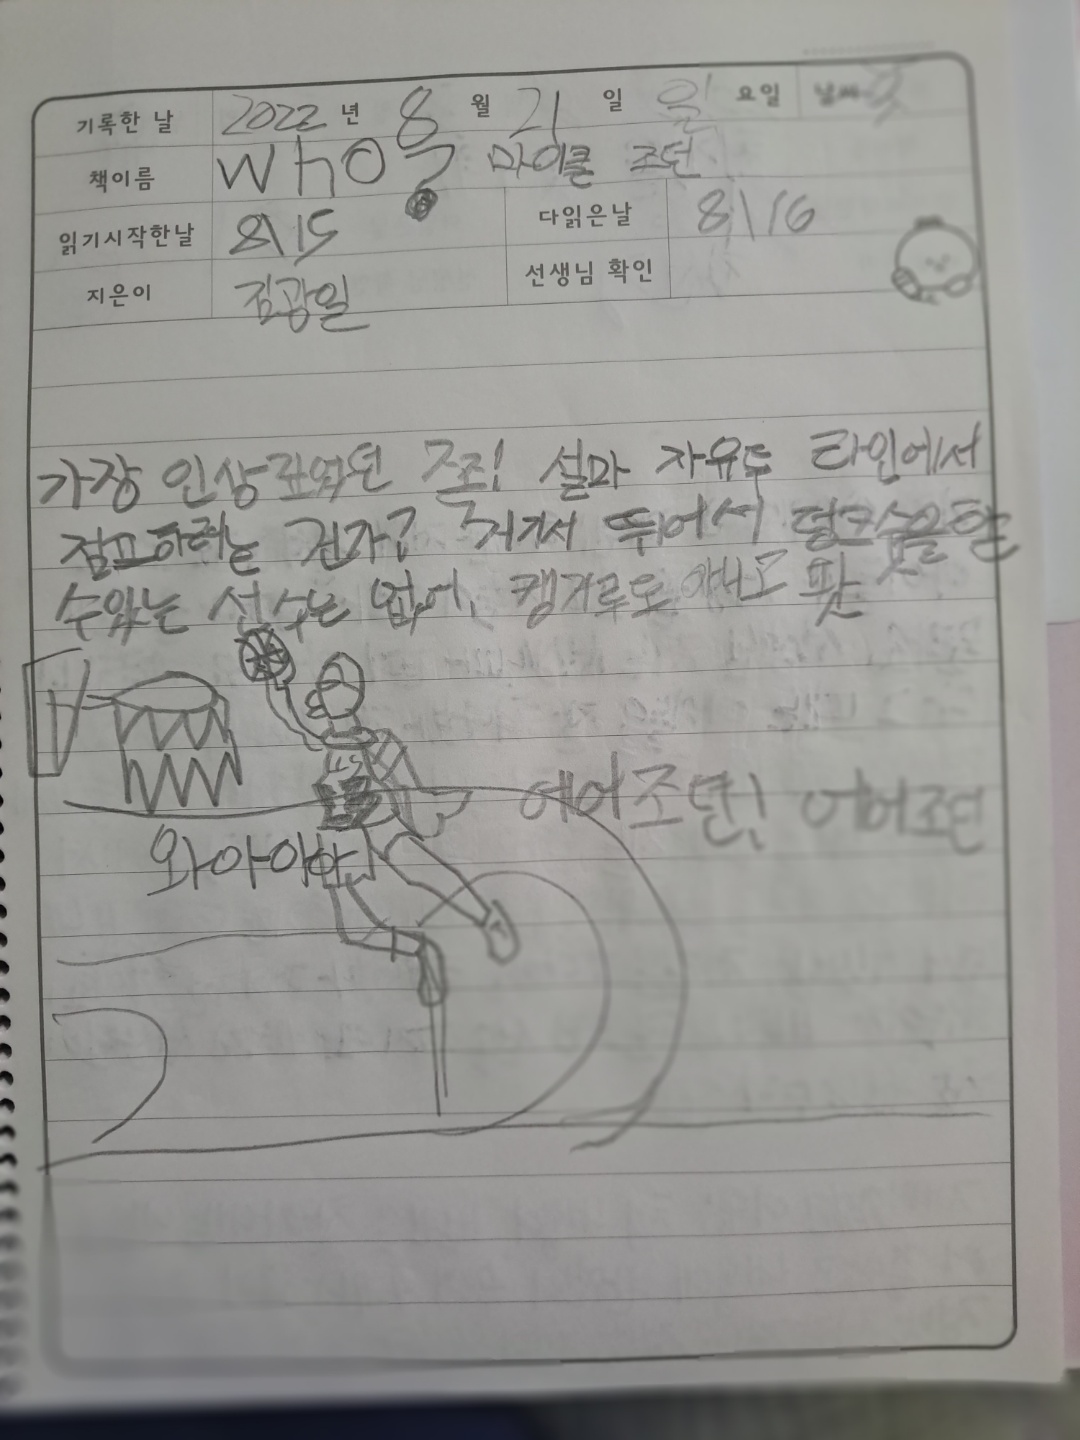 기록한 날 2022 년 8 월 21 일 일 요일 날씨
책이름 Who? 마이클 조던
읽기시작한날 8\15 다읽은날 8\16
지은이 김광일 선생님 확인
가장 인상 던 설마 자유투 라인에서
점프하려는 건가? 거기서 뛰어서 덩크슛을 할
수있는 선수는 없어, 캥거루도
에어조던! 에어조던
와아아아